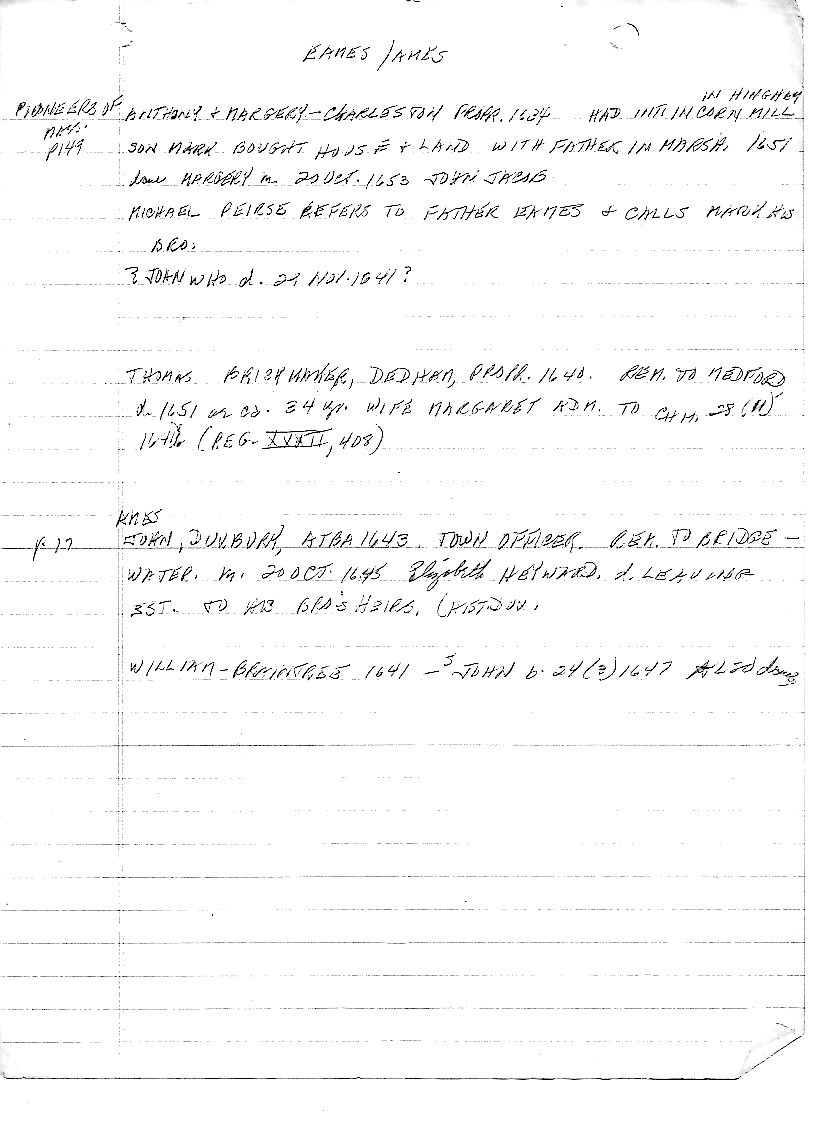 EAMES / AMES
IN HINGHAM
PIONEERS OF ANTHONY + MARGERY - CHARLESTON PROPR. 1634 HAD INT. IN CORN MILL
MASS. P149 SON MARK BOUGHT HOUSE + LAND WITH FATHER IN MARSH. 1651
dau MARGERY m. 20 OCT. 1653 JOHN JACOB
MICHAEL PEIRSE REFERS TO FATHER EAMES + CALLS MARK HIS
BRO.
? JOHN WHO d. 29 NOV. 1641?
THOMAS BRICKMAKER, DEDHAM, PROPR. 1640. REM. TO MEDFORD
d. 1651 ae ca. 34 yr. WIFE MARGARET ADM. TO CHH. 28 (11)
(REG. XVXII, 408)
AMES
P. 17 JOHN, DUXBURY, ATBA 1643 TOWN OFFICER. REM. TO BRIDGE-
WATER. m. 20 OCT. 1645 Elizabeth HEYWARD. d. LEAVING
EST. TO HIS BRO'S HEIRS. (HIST DUX.
WILLIAM - BRAINTREE 1641 - S JOHN b. 24 (3) 1647 ALSO daus